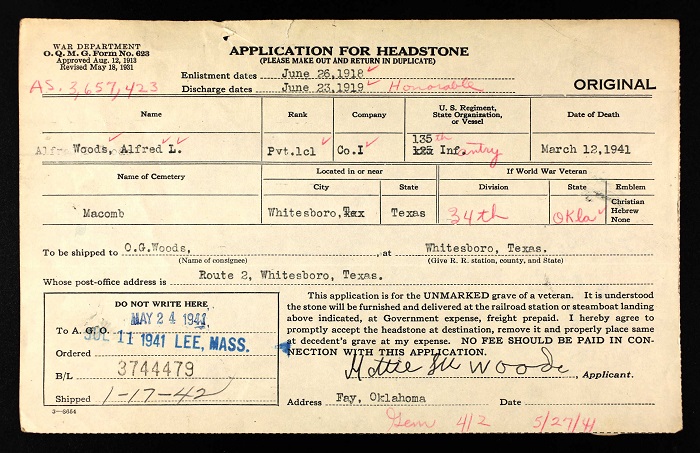 WAR DEPARTMENT
O. Q. M. G. Form No. 623
Approved Aug. 12, 1913
Revised May 18, 1931
APPLICATION FOR HEADSTONE
(PLEASE MAKE OUT AND RETURN IN DUPLICATE)
AS. 3,657,423
Enlistment dates June 26,1918
Discharge dates June 23,1919 Honorable
ORIGINAL
Name Rank Company U. S. Regiment, State Organization, or Vessel Date of Death
Woods, Alfred L. Pvt.1cl Co.I 135th Inf.antry March 12,1941
Name of Cemetery Located in or near If World War Veteran
City State Division State Emblem
Christian
Hebrew
None
Macomb Whitesboro, Texas 34th Okla
To be shipped to O.G.Woods, , at Whitesboro, Texas.
(Name of consignee) (Give R. R. station, county, and State)
Whose post-office address is Route 2, Whitesboro, Texas.
DO NOT WRITE HERE
MAY 24 1941
To A. G. O.
JUL 11 1941 LEE, MASS.
Ordered
B/L 3744479
Shipped 1-17-42
3—8654
This application is for the UNMARKED grave of a veteran. It is understood
the stone will be furnished and delivered at the railroad station or steamboat landing
above indicated, at Government expense, freight prepaid. I hereby agree to
promptly accept the headstone at destination, remove it and properly place same
at decedent's grave at my expense. NO FEE SHOULD BE PAID IN CON-
NECTION WITH THIS APPLICATION.
Woods, Applicant.
Address Fay, Oklahoma Date
4/2 5/27/41